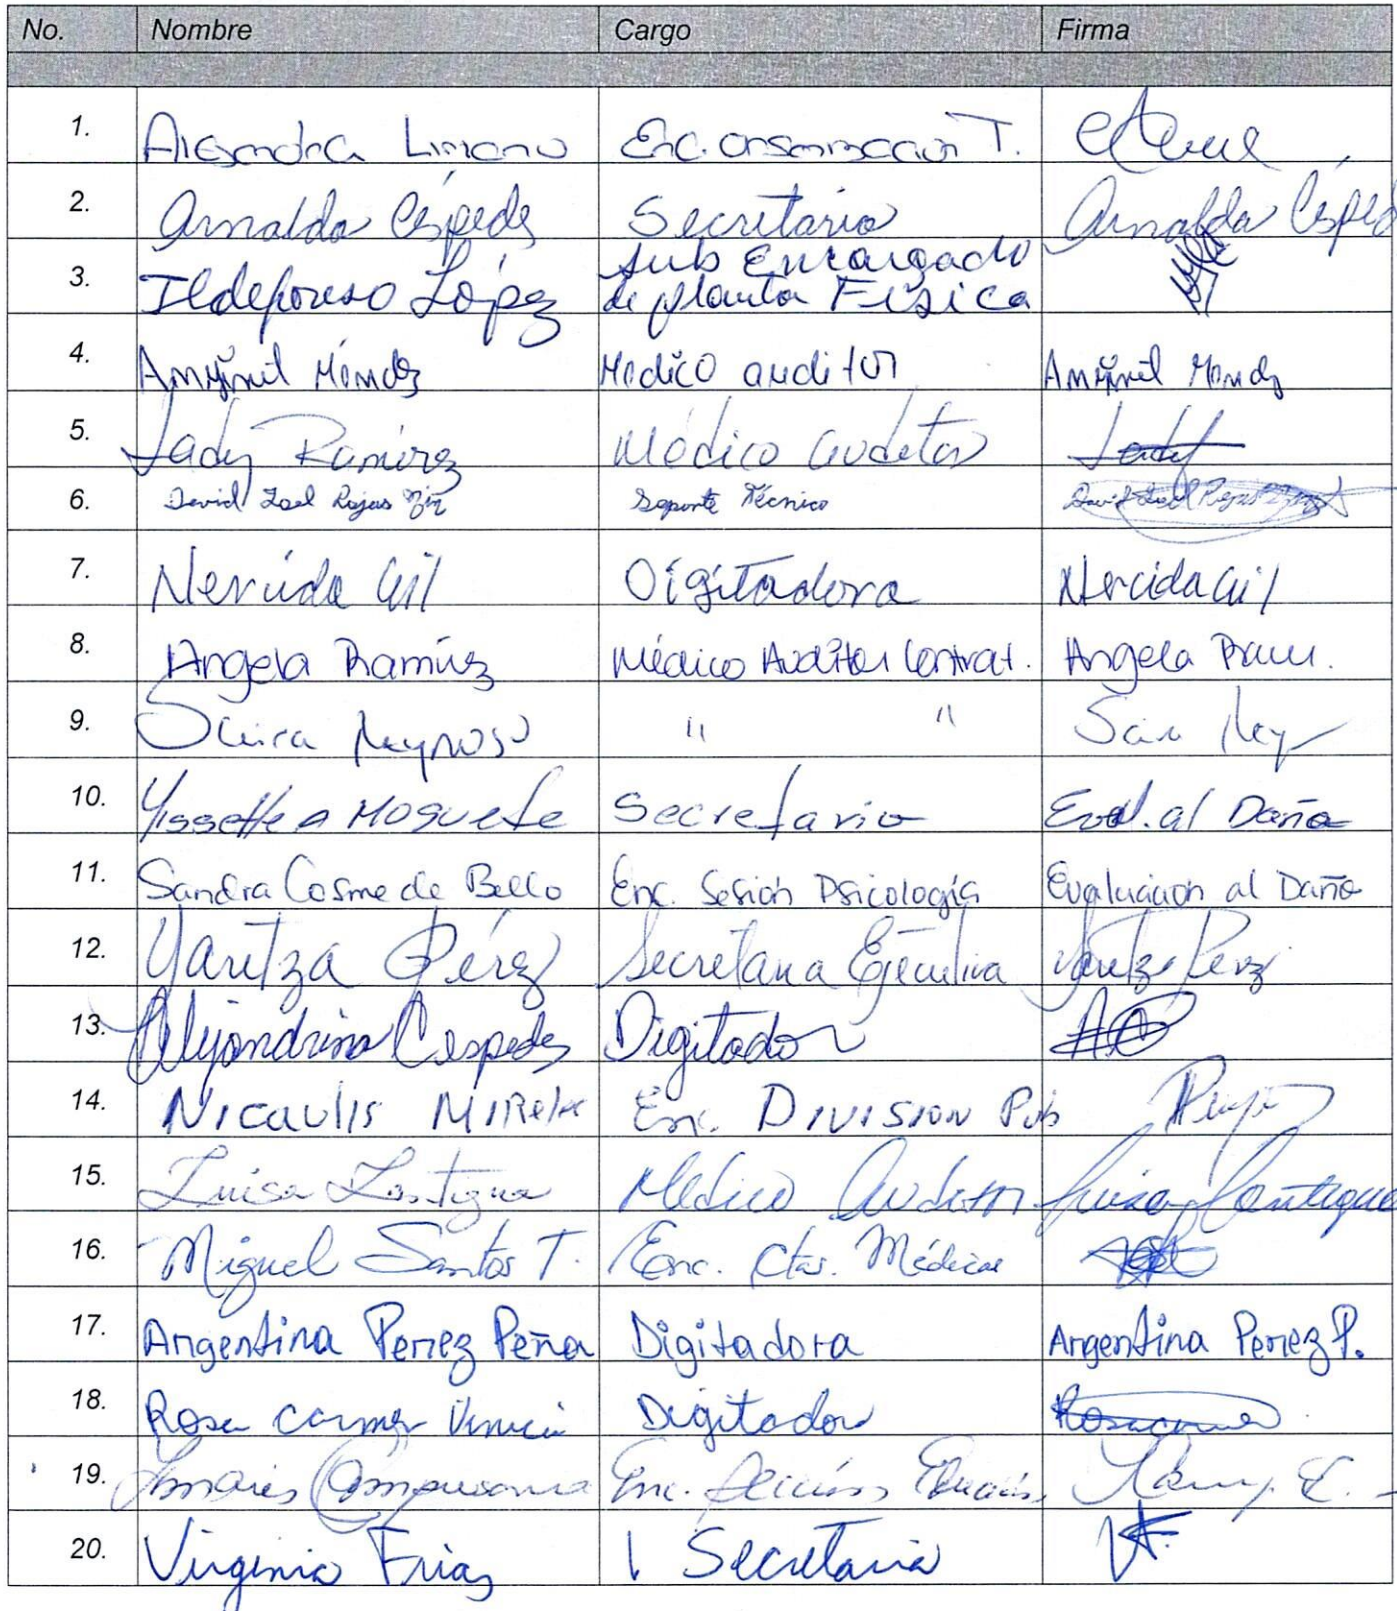 No. Nombre Cargo Firma
1. Alejandra Liriano Enc. T.
2. Arnalda Céspedes Secretaria Arnalda Césped
3. Ildefonso López Sub Encargado
de planta Física
4. Méndez Medico auditor Mendz
5. Lady Ramírez Médico Auditor
6. David Joel Rojas Soporte Técnico David Joel Rojas
7. Nercida Gil Digitadora Nercida Gil
8. Angela Ramírez Médico Auditor Contrat. Angela Ram.
9. Reynoso " " Rey
10. Yissette A Moquete Secretaria Eval. al Daño
11. Sandra Cosme de Bello Enc. Sesión Psicología Evaluación al Daño
12. Yaritza Pérez Secretaria Ejecutiva Yaritza Perez
13. Alejandrina Cespedes Digitador AC
14. Nicaulis Enc. DIVISION Pub
15. Luisa Lantigua Médico Auditor Luisa Lantigua
16. Miguel Santos T. Enc. Ctas. Médicas
17. Argentina Perez Peña Digitadora Argentina Perez P.
18. Rosa Carmen Digitador Rosacarmen
19. Campusano Enc. C.
20. Virginia Frias Secretaria VF.